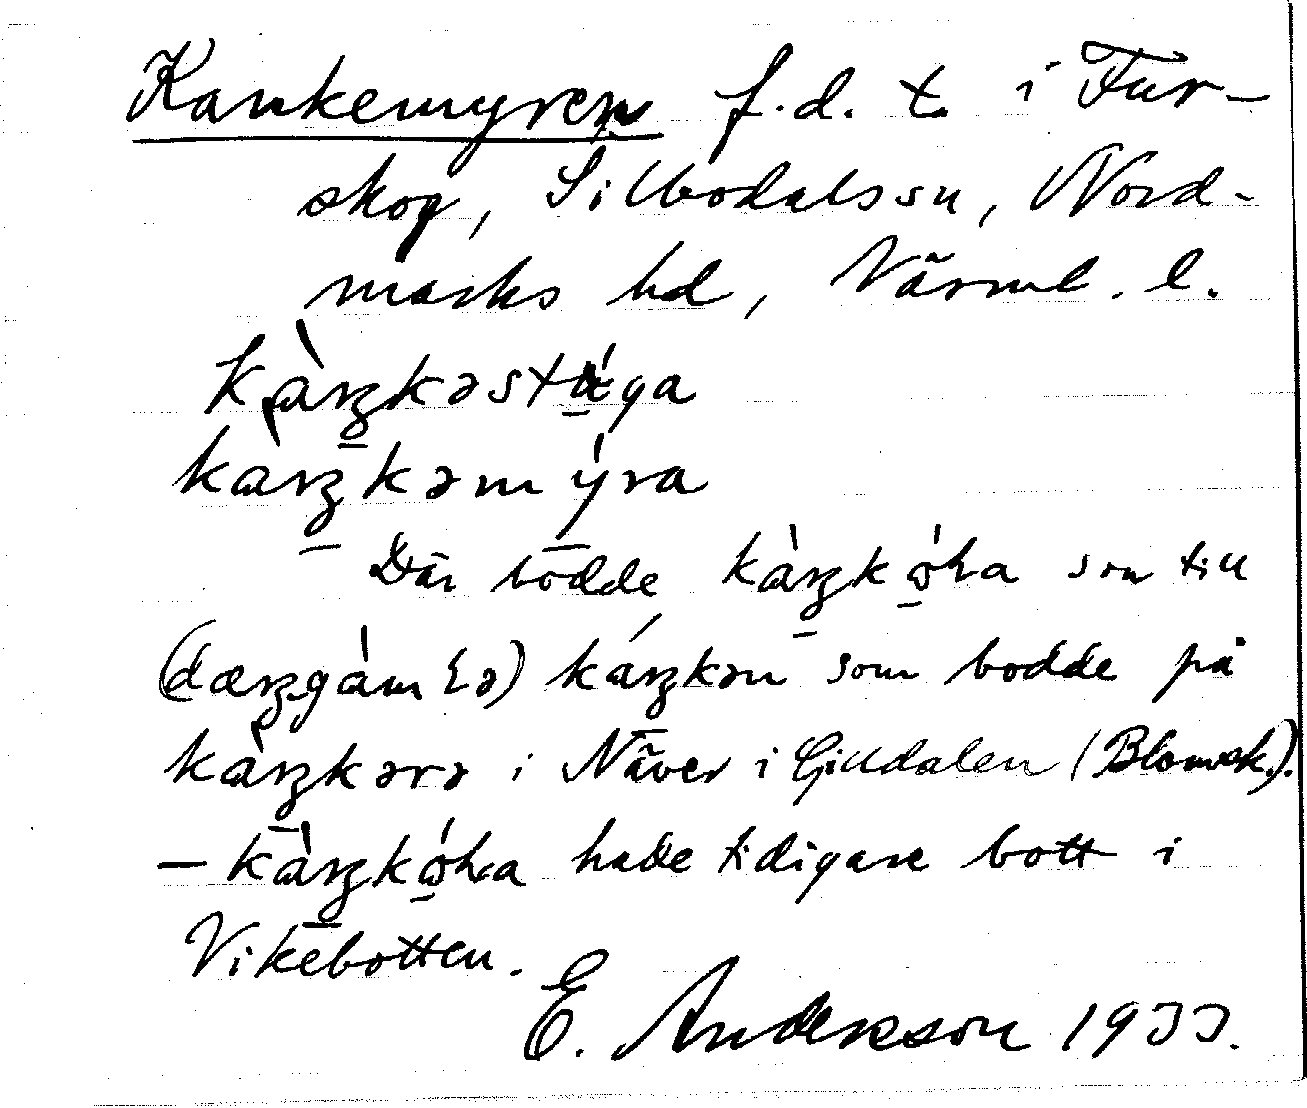 Kankemyren f.d. t. i Fur-
skog, Silbodals sn, Nord-
marks hd, Värml. l.
kàŋkəstúga
kàŋkəmýra
Där bodde kàŋkóla son till
(dæŋgàmɬə) káŋkən som bodde på
kàŋkərə i Näver i Gilldalen (Blomsk.).
— kàŋkóla hade tidigare bott i
Vikebotten.
E. Anderson 1933.